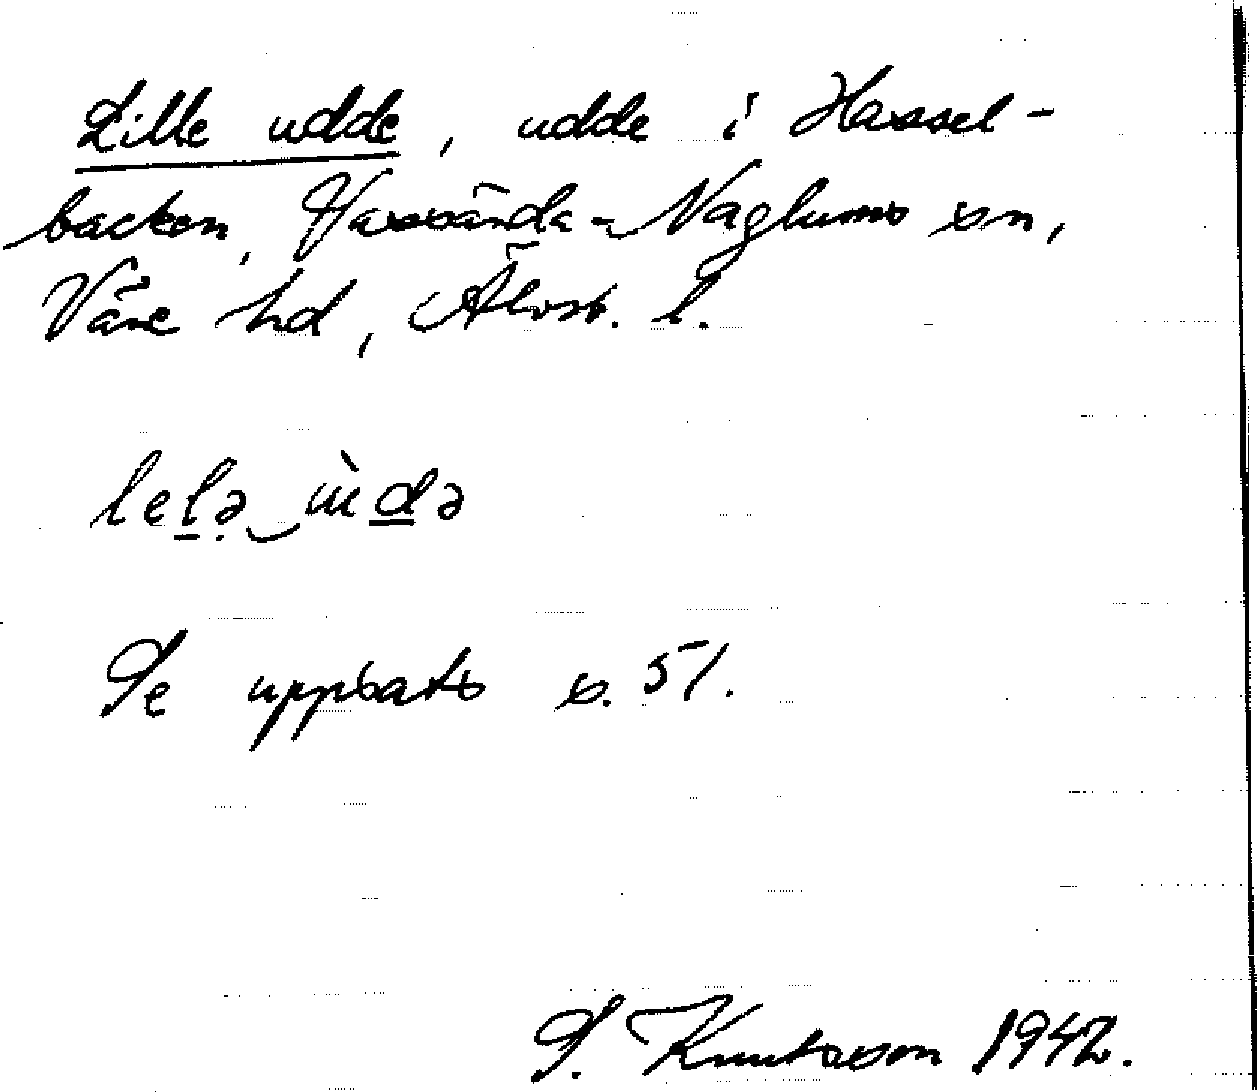 Lille udde, udde i Hassel-
backen, Vassända-Naglums sn,
Väne hd, Älvsb. l.
lelə ùdə
Se uppsats s. 51.
S. Knutsson 1942.